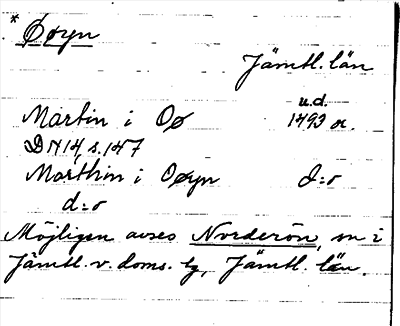 * Ööyn
Jämtl. län
Martin i Oø
u.d.
1493 or.
DN 14, s. 147
Marthin i Oøyn d:o
d:o
Möjligen avses Norderön, sn i
Jämtl. v. doms. tg, Jämtl. län.